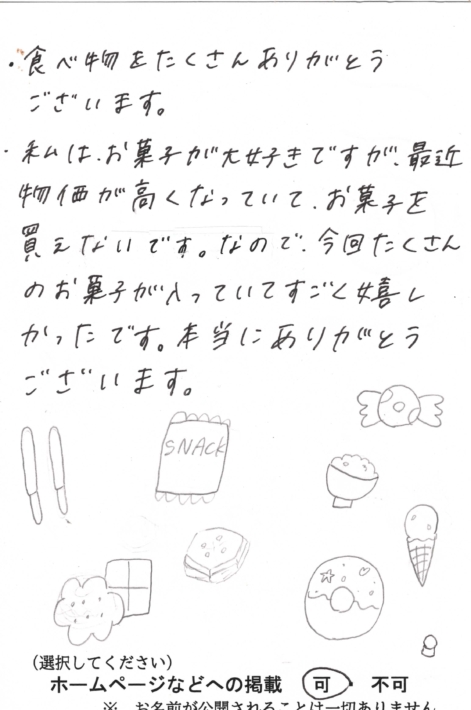 ・食べ物をたくさんありがとう
ございます。
・私は、お菓子が大好きですが、最近
物価が高くなっていて、お菓子を
買えないです。なので、今回たくさん
のお菓子が入っていてすごく嬉し
かったです。本当にありがとう
ございます。
SNACK
（選択してください）
ホームページなどへの掲載 可 ・ 不可
※ お名前が公開されることは一切ありません